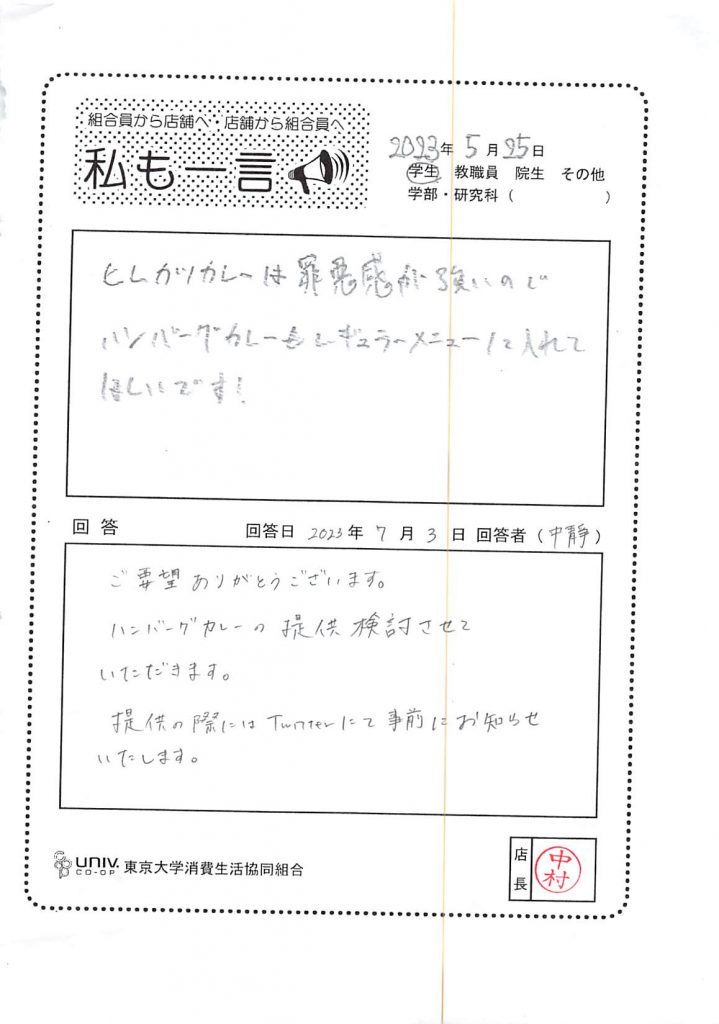 組合員から店舗へ・店舗から組合員へ
私も一言
2023年 5月 25日
学生 教職員 院生 その他
学部・研究科（ ）
ヒレカツカレーは罪悪感が強いので
ハンバーグカレーもレギュラーメニューに入れて
ほしいです!
回答 回答日 2023年 7月 3日 回答者（中静）
ご要望ありがとうございます。
ハンバーグカレーの提供検討させて
いただきます。
提供の際にはTwitterにて事前にお知らせ
いたします。
UNIV. CO-OP 東京大学消費生活協同組合
店長 中村